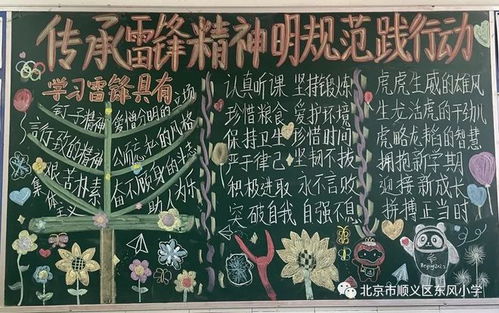 传承雷锋精神明规范践行动
学习雷锋具有
钉子精神 爱憎分明的立场
言行一致的精神 公而忘私的风格
艰苦朴素 奋不顾身的斗志
集体主义 助人为乐
认真听课 坚持锻炼
珍惜粮食 爱护环境
保持卫生 珍惜时间
严于律己 坚韧不拔
积极进取 永不言败
突破自我 自强不息
虎虎生威的雄风
生龙活虎的干劲儿
虎略龙韬的智慧
拥抱新学期
迎接新成长
拼搏正当时
北京市顺义区东风小学